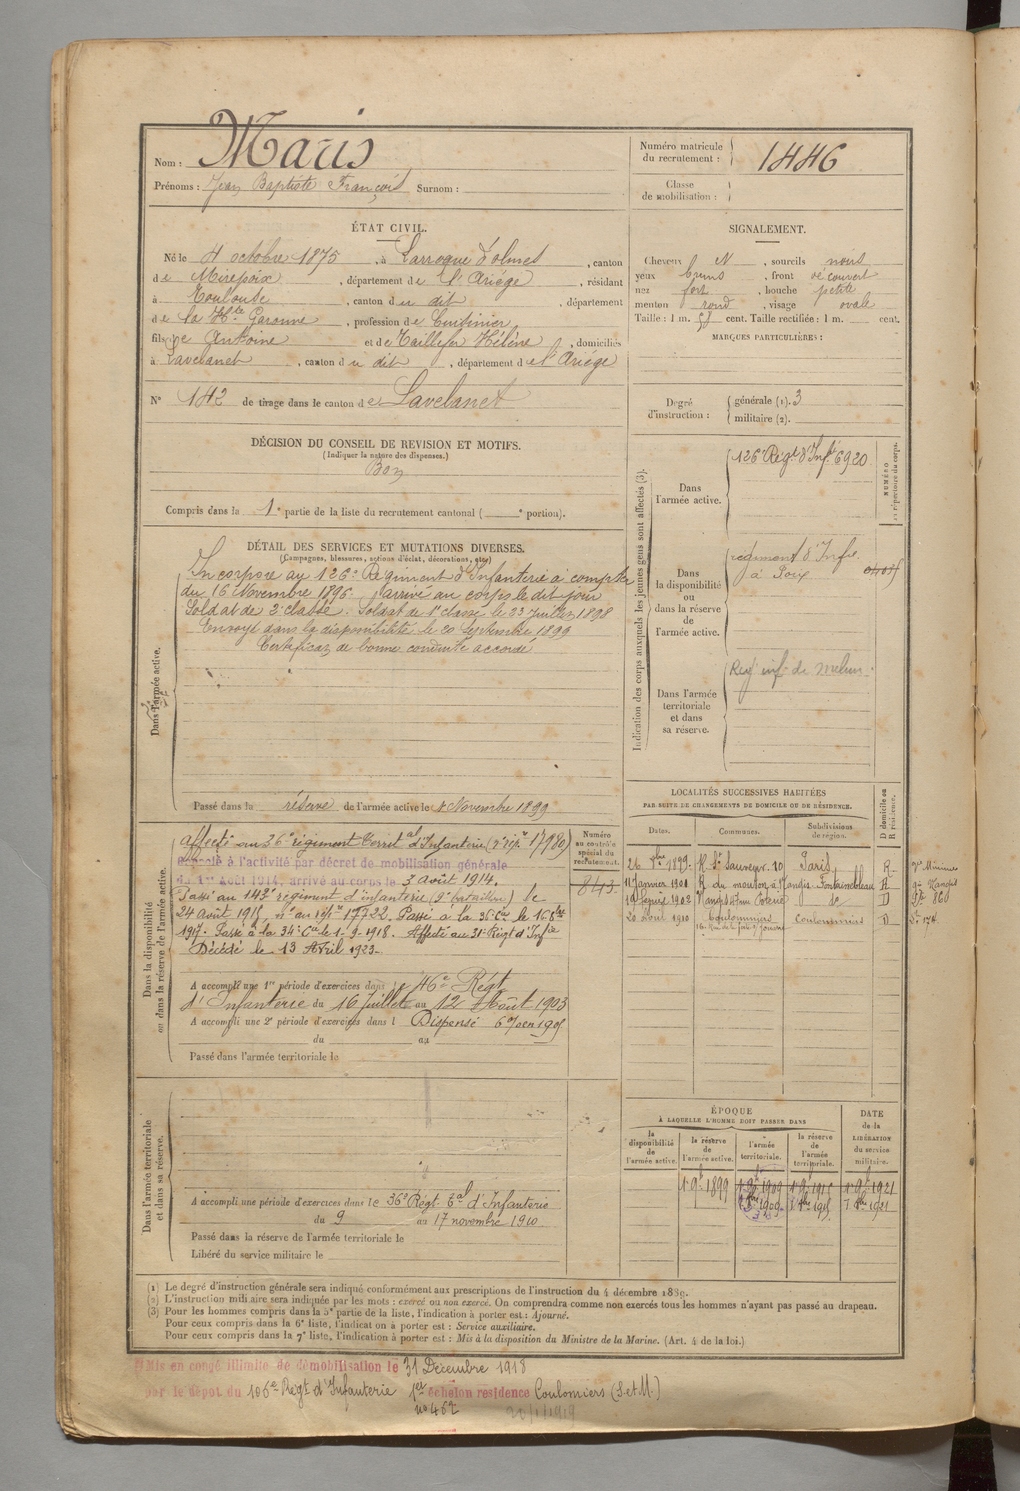 Nom : Maris
Prénoms : Jean Baptiste François Surnom :
Numéro matricule du recrutement : 1446
Classe de mobilisation :
ÉTAT CIVIL.
Né le 4 octobre 1875, à Larroque d'olmes, canton
de Mirepoix, département de l'Ariége, résidant
à Toulouse, canton du dit, département
de la Hte Garonne, profession de Cuisinier
fils de Antoine et de Taillefer Hélène, domiciliés
à Lavelanet, canton du dit, département de l'Ariége
N° 142 de tirage dans le canton de Lavelanet
SIGNALEMENT.
Cheveux N, sourcils noirs
yeux bruns, front découvert
nez fort, bouche petite
menton rond, visage ovale
Taille : 1 m. 58 cent. Taille rectifiée : 1 m. cent.
MARQUES PARTICULIÈRES :
Degré d'instruction : générale (1). 3
militaire (2).
DÉCISION DU CONSEIL DE REVISION ET MOTIFS.
(Indiquer la nature des dispenses.)
Bon
Compris dans la 1e partie de la liste du recrutement cantonal ( e portion).
DÉTAIL DES SERVICES ET MUTATIONS DIVERSES.
(Campagnes, blessures, actions d'éclat, décorations, etc.)
Dans l'armée active.
Incorporé au 126e Régiment d'Infanterie à compter
du 16 Novembre 1896, arrivé au corps le dit jour
Soldat de 2e classe. Soldat de 1e classe le 23 Juillet 1898
Envoyé dans la disponibilité le 20 Septembre 1899
Certificat de bonne conduite accordé
Passé dans la réserve de l'armée active le 1 Novembre 1899
Indication des corps auxquels les jeunes gens sont affectés (3).
NUMÉRO au répertoire du corps.
Dans l'armée active. 126e Régt d'Infie 6920
Dans la disponibilité ou dans la réserve de l'armée active. régiment d'Infie
à Foix
Dans l'armée territoriale et dans sa réserve. Reg inf de Melun
Dans la disponibilité ou dans la réserve de l'armée active.
Numéro au contrôle spécial du recrutement. 843
Affecté au 36e régiment Territal d'Infanterie (n° rép. 17980)
Rappelé à l'activité par décret de mobilisation générale
du 1er Août 1914, arrivé au corps le 3 août 1914.
Passé au 143e régiment d'infanterie (9e bataillon) le
24 Août 1915, n° au rép. 17722. Passé à la 36e Cie le 16 8bre
1917. Passé à la 34e Cie le 1-9-1918. Affecté au 31e Régt d'Infie
Décédé le 13 Avril 1923.
A accompli une 1re période d'exercices dans le 46e Régt
d'Infanterie du 16 Juillet au 12 Août 1903
A accompli une 2e période d'exercices dans l Dispensé
du au
Passé dans l'armée territoriale le
LOCALITÉS SUCCESSIVES HABITÉES
PAR SUITE DE CHANGEMENTS DE DOMICILE OU DE RÉSIDENCE.
Dates. Communes. Subdivisions de région. D domicile ou R résidence.
26 9bre 1899. R St Sauveur. 20 Paris R
11 Janvier 1901 R du mouton à Nangis Fontainebleau R
1902 Nangis d D
20 Août 1910 Coulommiers Coulommiers D
Dans l'armée territoriale et dans sa réserve.
A accompli une période d'exercices dans le 36e Régt Tal d'Infanterie
du 9 au 17 novembre 1910
Passé dans la réserve de l'armée territoriale le
Libéré du service militaire le
ÉPOQUE
À LAQUELLE L'HOMME DOIT PASSER DANS
la disponibilité de l'armée active. la réserve de l'armée active. l'armée territoriale. la réserve de l'armée territoriale. DATE de la LIBÉRATION du service militaire.
1 9b 1899 1 9b 1909 1 9b 1915 1 9b 1921
(1) Le degré d'instruction générale sera indiqué conformément aux prescriptions de l'instruction du 4 décembre 1889.
(2) L'instruction militaire sera indiquée par les mots : exercé ou non exercé. On comprendra comme non exercés tous les hommes n'ayant pas passé au drapeau.
(3) Pour les hommes compris dans la 5e partie de la liste, l'indication à porter est : Ajourné.
Pour ceux compris dans la 6e liste, l'indication à porter est : Service auxiliaire.
Pour ceux compris dans la 7e liste, l'indication à porter est : Mis à la disposition du Ministre de la Marine. (Art. 4 de la loi.)
Mis en congé illimité de démobilisation le 31 Décembre 1918
par le dépôt du 106e Régt d'Infanterie 1er échelon résidence Coulomiers (S et M.)
no 462